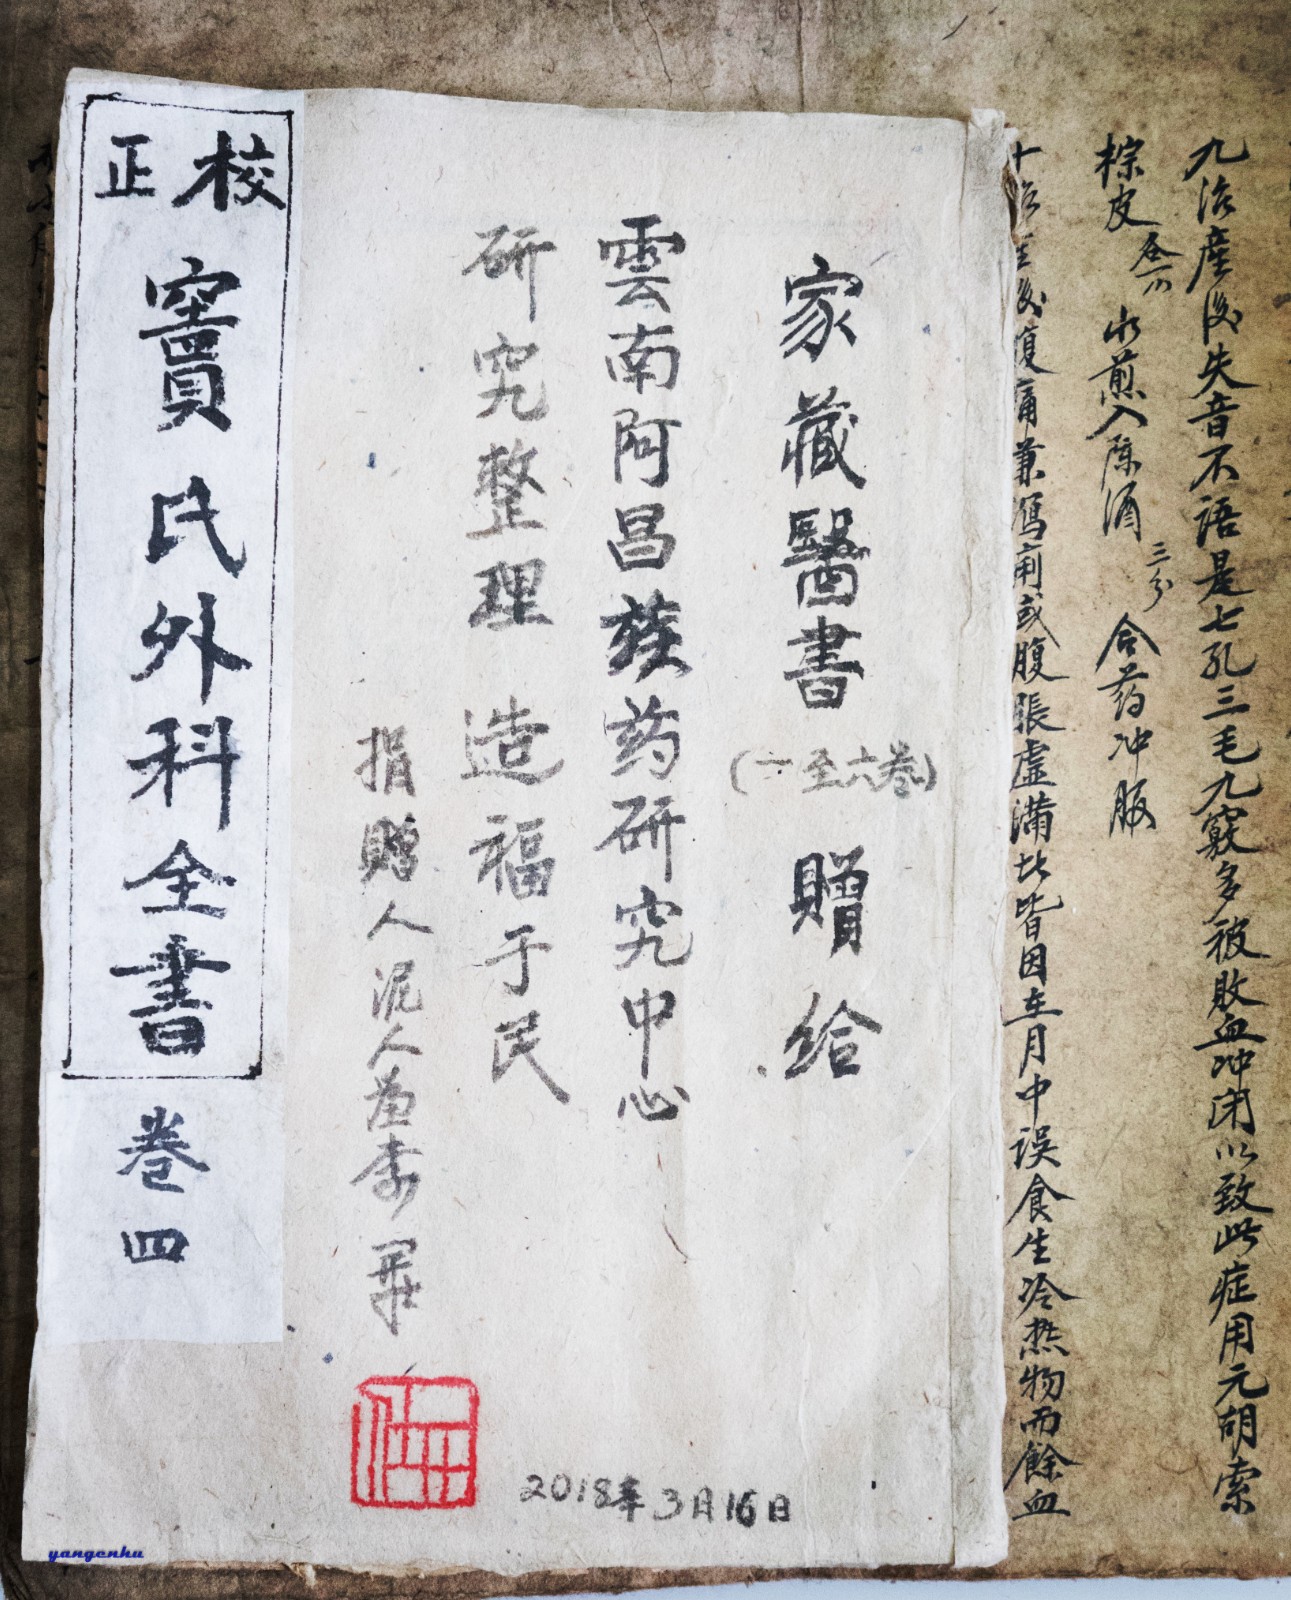 九治産後失音不語是七孔三毛九竅多被敗血冲閉以致此症用元胡索
棕皮各一 水煎入陈酒三分 合药冲服
後腹痛兼瀉痢或腹脹虚满此皆因在月中误食生冷热物而餘血
家藏醫書(一至六卷)贈给
雲南阿昌族药研究中心
研究整理 造福于民
捐赠人泥人
2018年3月16日
校正
竇氏外科全書
卷四
yangenhu